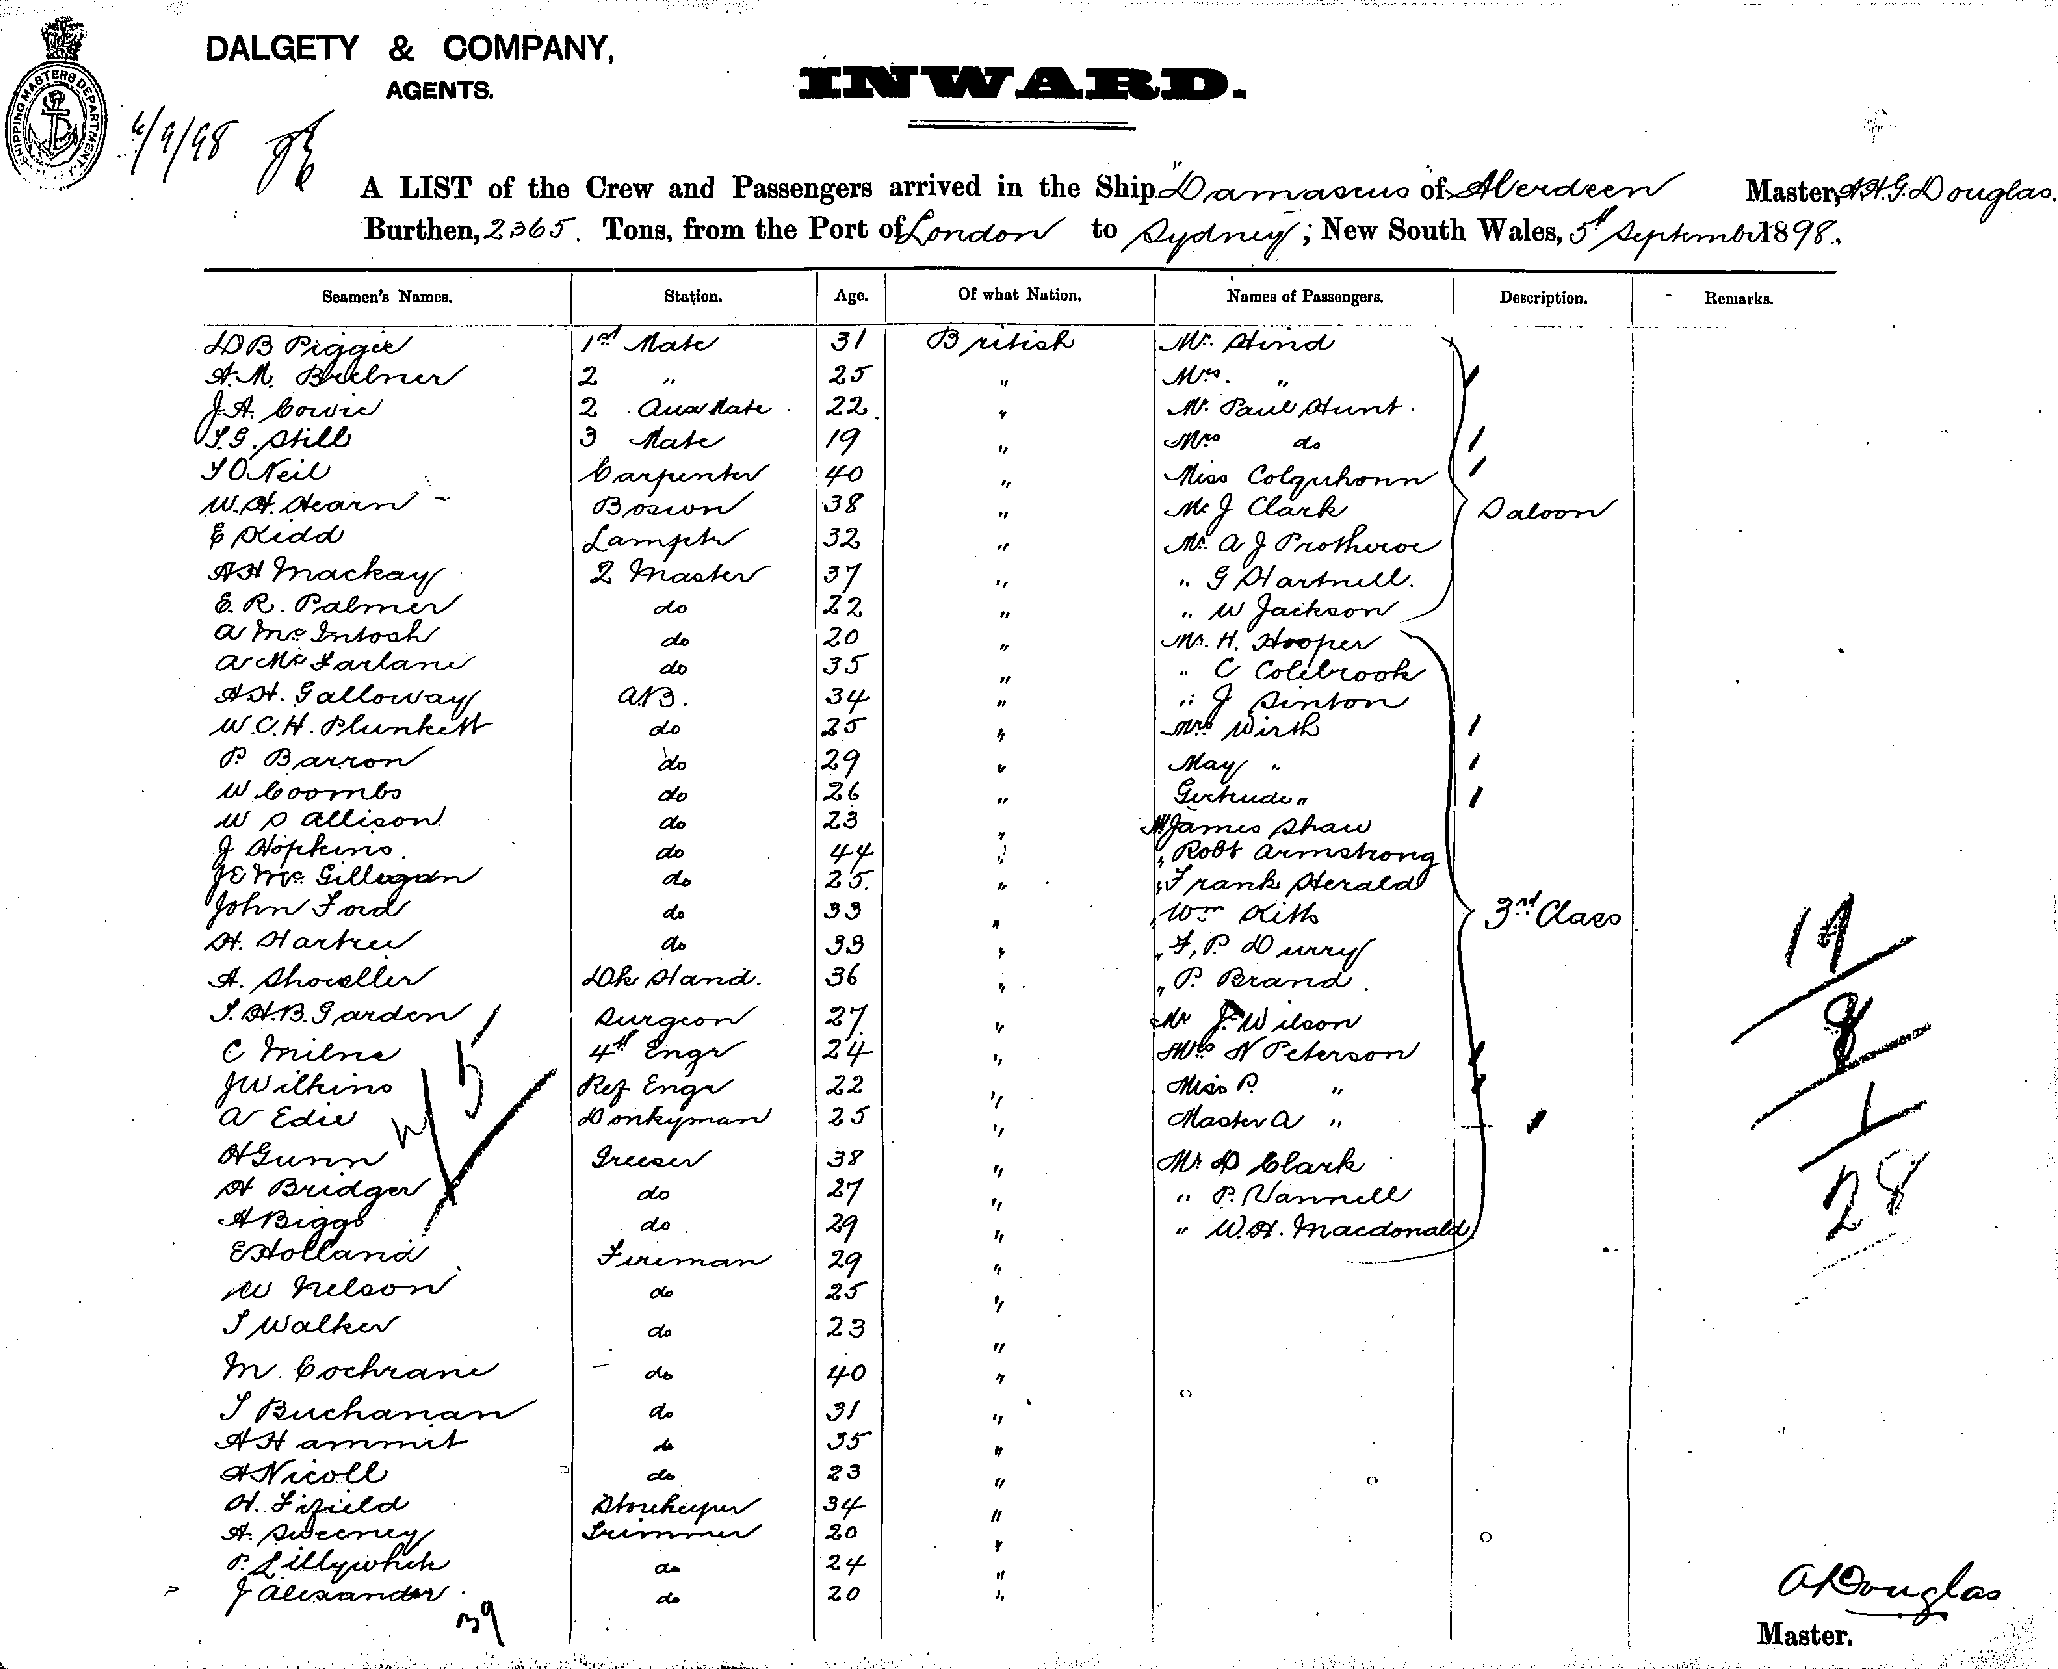 DALGETY & COMPANY,
AGENTS.
INWARD.
SHIPPING MASTERS DEPARTMENT
6/9/98
A LIST of the Crew and Passengers arrived in the Ship Damascus of Aberdeen Master, A.H.G. Douglas.
Burthen, 2365. Tons, from the Port of London to Sydney; New South Wales, 5th September 1898.
Seamen's Names. Station. Age. Of what Nation. Names of Passengers. Description. Remarks.
D B Piggie 1st Mate 31 British Mr. Hind
A. M. Bulmer 2 " 25 " Mrs. "
J. A. Cowie 2 Aux Mate 22 " Mr. Paul Hunt.
S. G. Still 3 Mate 19 " Mrs do
J O Neil Carpenter 40 " Miss Colquhonn
W. H. Hearn Boswn 38 " Mr J Clark Saloon
E Kidd Lamptr 32 " Mr. A J Protheroe
A H Mackay 2 Master 37 " " G Hartnell.
E. R. Palmer do 22 " " W Jackson
A McIntosh do 20 " Mr. H. Hooper
A McFarlane do 35 " " C Colebrook
A H. Galloway A.B. 34 " " J Sinton
W. C. H. Plunkett do 25 " Mrs Wirth
P. Barron do 29 " May "
W Coombs do 26 " Gertrude "
W S Allison do 23 " Mr James Shaw
J Hopkins. do 44 " " Robt Armstrong
J E McGilligan do 25. " " Frank Herald
John Ford do 33 " " Wm Kitts 3rd Class
H. Harker do 33 " " F. P. Durry
A. Shoveller Dk Hand. 36 " " P. Brand.
S. H. B. Garden Surgeon 27 " Mr J. Wilson
C Milne 4th Engr 24 " Mrs N Peterson
J Wilkins Ref Engr 22 " Miss P. "
A Edie Donkyman 25 " Master A "
H Gunn Greeser 38 " Mr D Clark
H Bridger do 27 " " P. Vannell
A Biggs do 29 " " W. H. Macdonald
E Holland Fireman 29 "
W Nelson do 25 "
S Walker do 23 "
M. Cochrane do 40 "
S Buchanan do 31 "
A Hammit do 35 "
A Nicoll do 23 "
H. Fifield Storekeeper 34 "
A. Sweeney Trimmer 20 "
P. Lillywhite do 24 "
J Alexander do 20 "
39
19
8
1
28
A Douglas
Master.